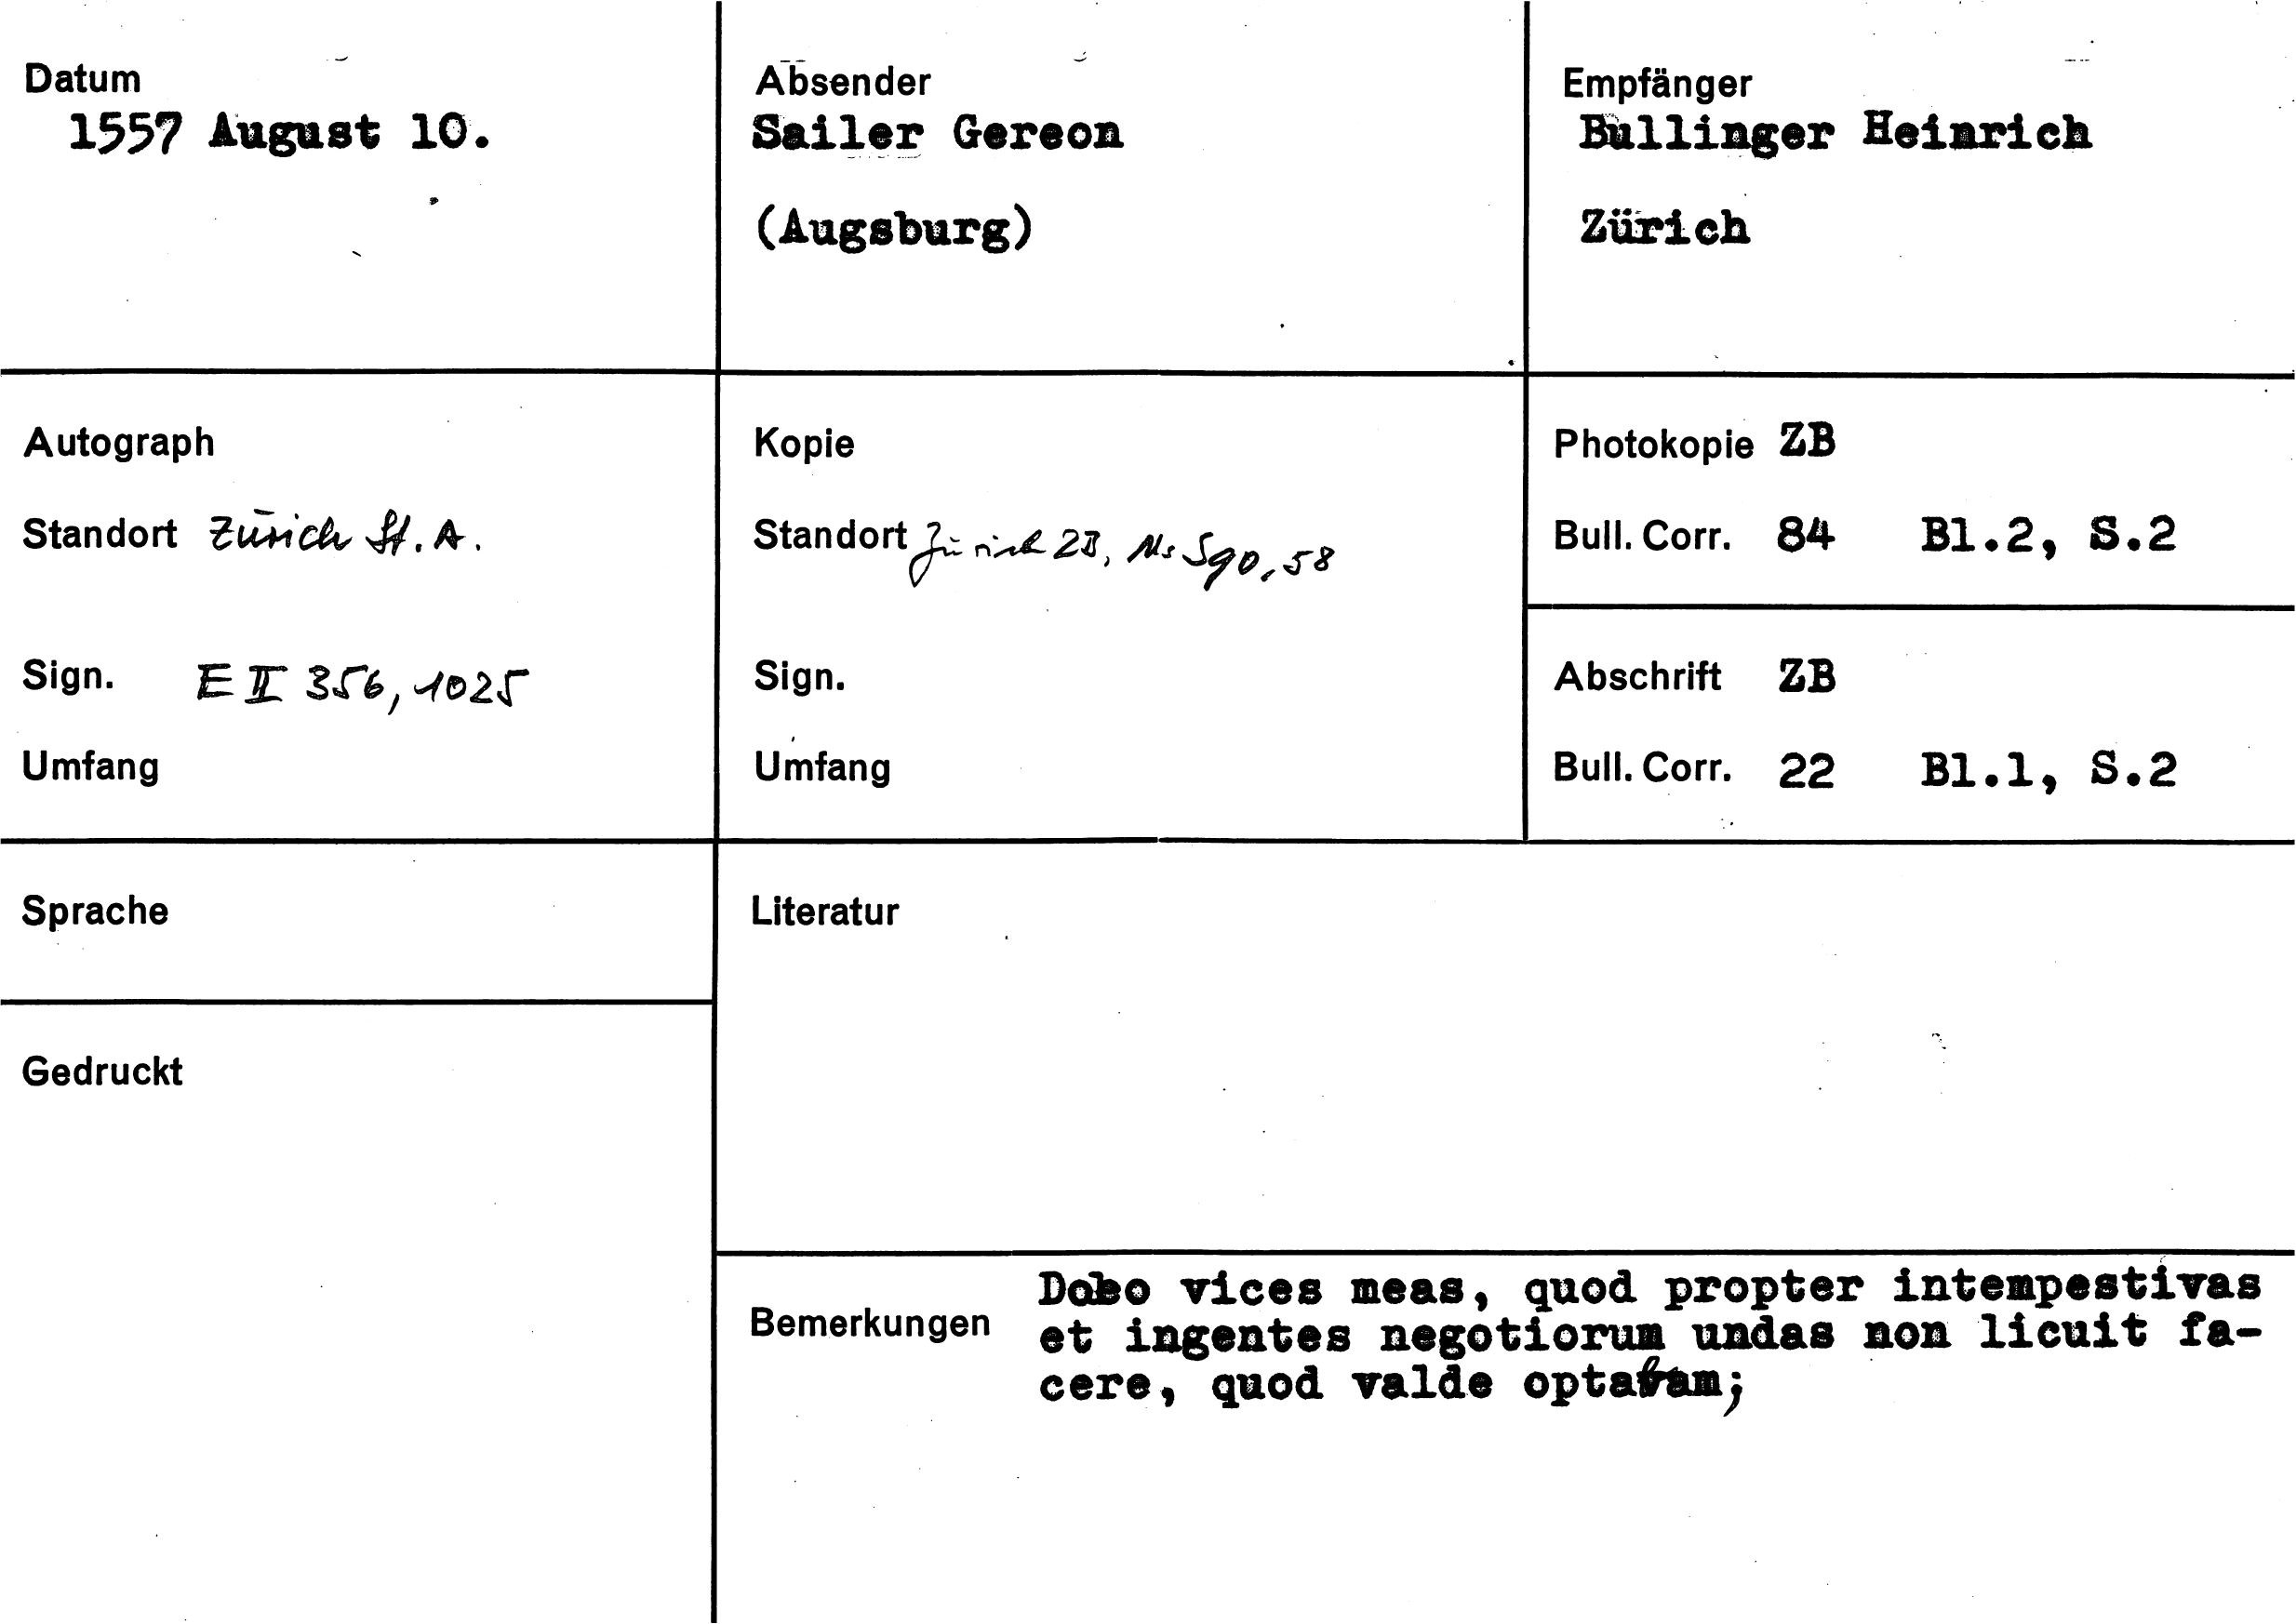 Datum
1557 August 10.
Absender
Sailer Gereon
(Augsburg)
Empfänger
Bullinger Heinrich
Zürich
Autograph
Standort Zürich St. A.
Sign. E II 356, 1025
Umfang
Kopie
Standort Zürich ZB, Ms S 90, 58
Sign.
Umfang
Photokopie ZB
Bull. Corr. 84 Bl.2, S.2
Abschrift ZB
Bull. Corr. 22 Bl.1, S.2
Sprache
Gedruckt
Literatur
Bemerkungen
vices meas, quod propter intempestivas
et ingentes negotiorum undas non licuit fa-
cere, quod valde optabam;